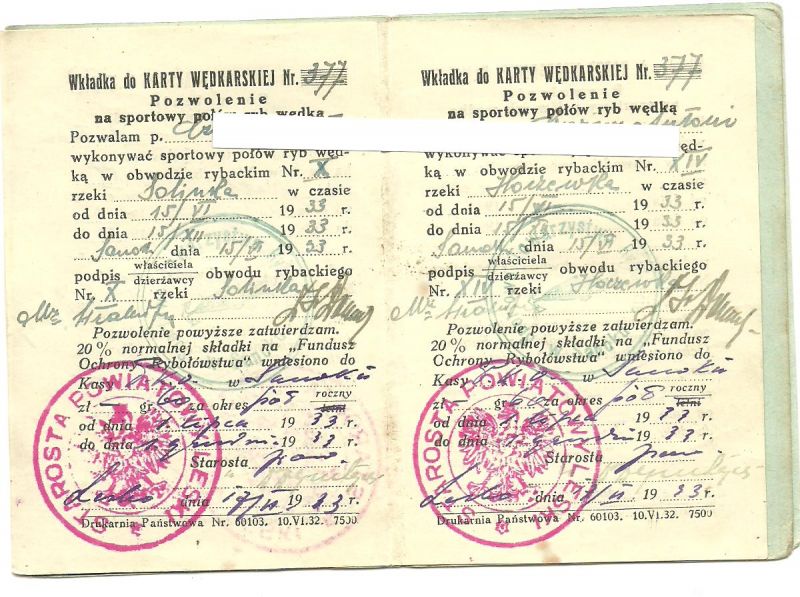 Wkładka do KARTY WĘDKARSKIEJ Nr. 377
Pozwolenie
na sportowy połów ryb wędką
Pozwalam p.
wykonywać sportowy połów ryb węd-
ką w obwodzie rybackim Nr. X
rzeki Solinka w czasie
od dnia 15/VI 1933 r.
do dnia 15/XII 1933 r.
Sanok dnia 15/VI 1933 r.
podpis właściciela obwodu rybackiego
dzierżawcy
Nr. X rzeki Solinka
Pozwolenie powyższe zatwierdzam.
20% normalnej składki na „Fundusz
Ochrony Rybołówstwa" wniesiono do
Kasy w Sanoku
zł — gr 60 za okres pół roczny
letni
od dnia 1 lipca 1933 r.
do dnia grudni 1933 r.
Starosta
Lesko dnia 17/VI 1933 r.
Drukarnia Państwowa Nr. 60103. 10.VI.32. 7500
STAROSTA POWIATU LESKI
Wkładka do KARTY WĘDKARSKIEJ Nr. 377
Pozwolenie
na sportowy połów ryb wędką
Antoni
wykonywać sportowy połów ryb węd-
ką w obwodzie rybackim Nr. XIV
rzeki Hoczewka w czasie
od dnia 15/VI 1933 r.
do dnia 15/XII 1933 r.
Sanok dnia 15/VI 1933 r.
podpis właściciela obwodu rybackiego
dzierżawcy
Nr. XIV rzeki Hoczewka
Pozwolenie powyższe zatwierdzam.
20% normalnej składki na „Fundusz
Ochrony Rybołówstwa" wniesiono do
Kasy w Sanoku
zł — gr 60 za okres pół roczny
letni
od dnia 1 lipca 1933 r.
do dnia grudni 1933 r.
Starosta
Lesko dnia 17/VI 1933 r.
Drukarnia Państwowa Nr. 60103. 10.VI.32. 7500
STAROSTA POWIATU LESKI